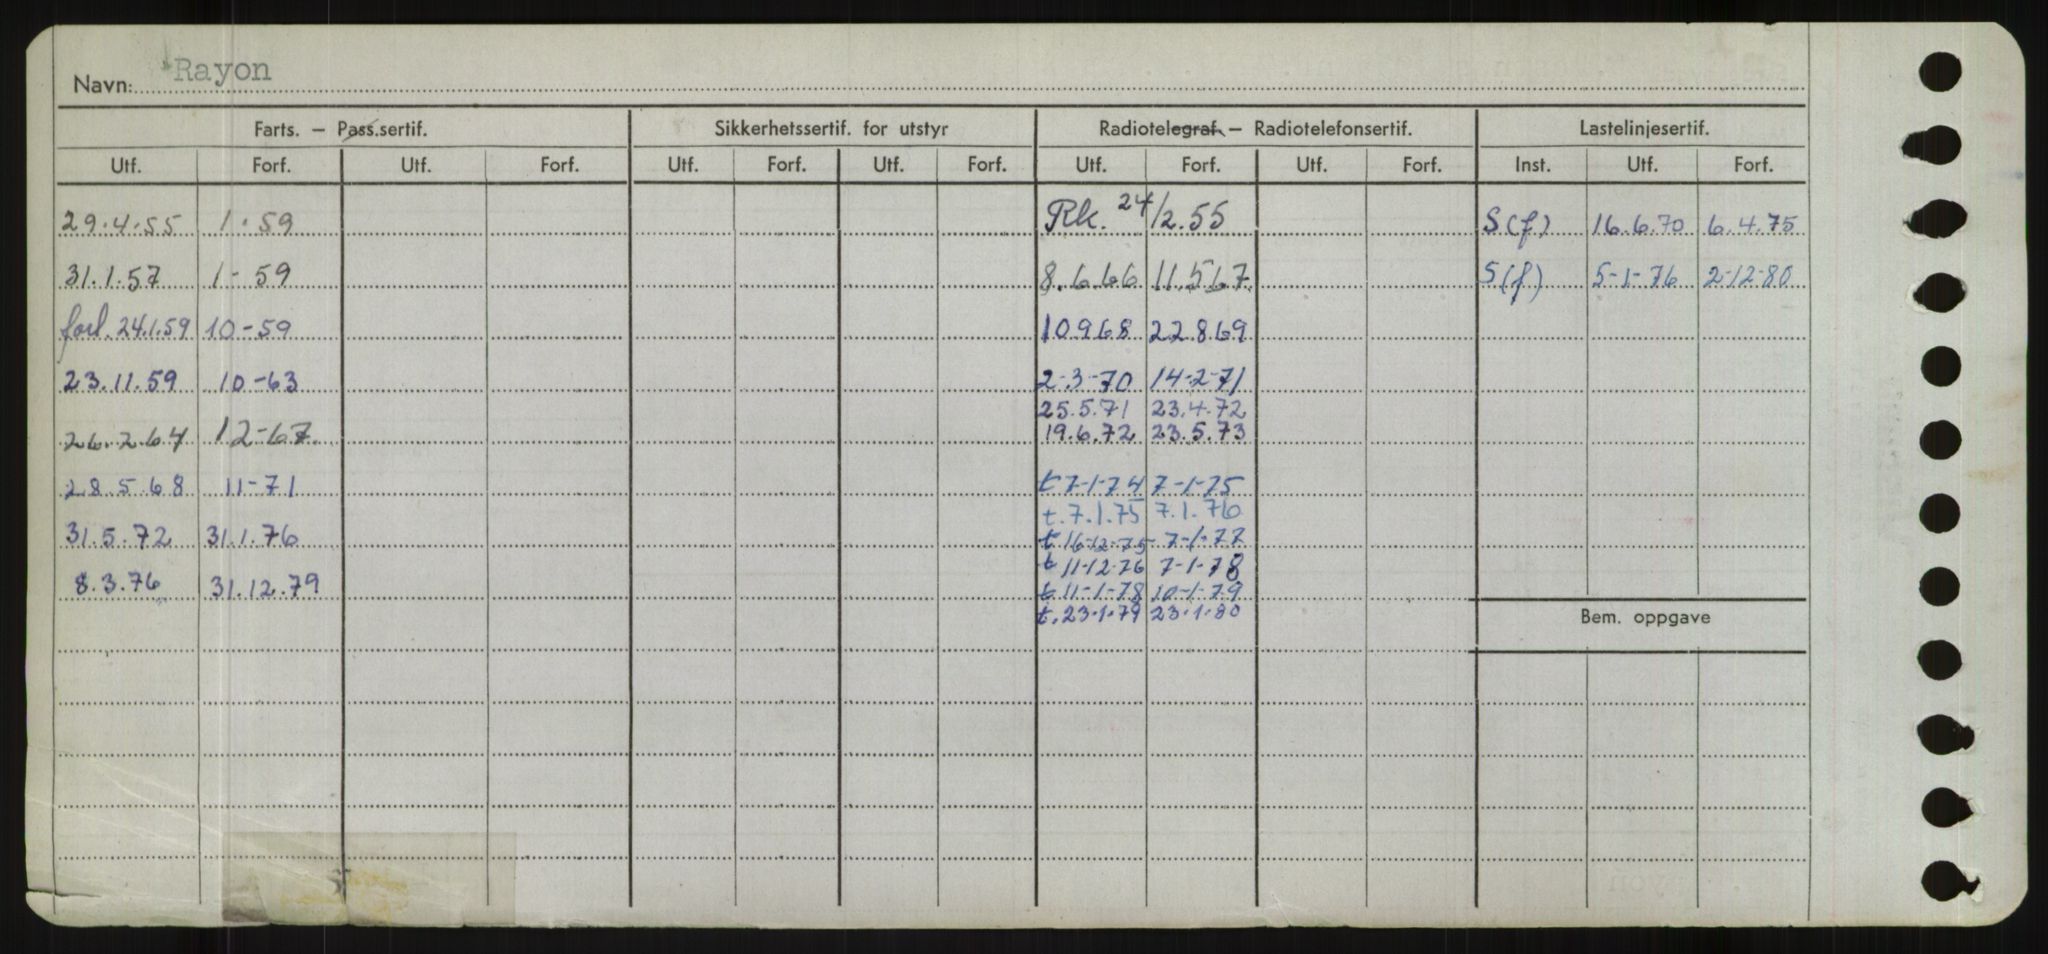 Navn: Rayon
Farts. – Pass.sertif. Sikkerhetssertif. for utstyr Radiotelegraf. – Radiotelefonsertif. Lastelinjesertif.
Utf. Forf. Utf. Forf. Utf. Forf. Utf. Forf. Utf. Forf. Utf. Forf. Inst. Utf. Forf.
29.4.55 1.59 Rk. 24/2.55 S(f) 16.6.70 6.4.75
31.1.57 1-59 8.6.66 11.5.67 S(f) 5-1-76 2-12-80
forl. 24.1.59 10-59 10968 22869
23.11.59 10-63 2-3-70 14-2-71
25.5.71 23.4.72
26.2.64 12-67. 19.6.72 23.5.73
28.5.68 11-71 t 7-1-74 7-1-75
t. 7.1.75 7.1.76
31.5.72 31.1.76 t 16-12-75 7-1-77
t 11-12-76 7-1-78
8.3.76 31.12.79 t 11-1-78 10-1-79
t. 23.1.79 23.1.80
Bem. oppgave